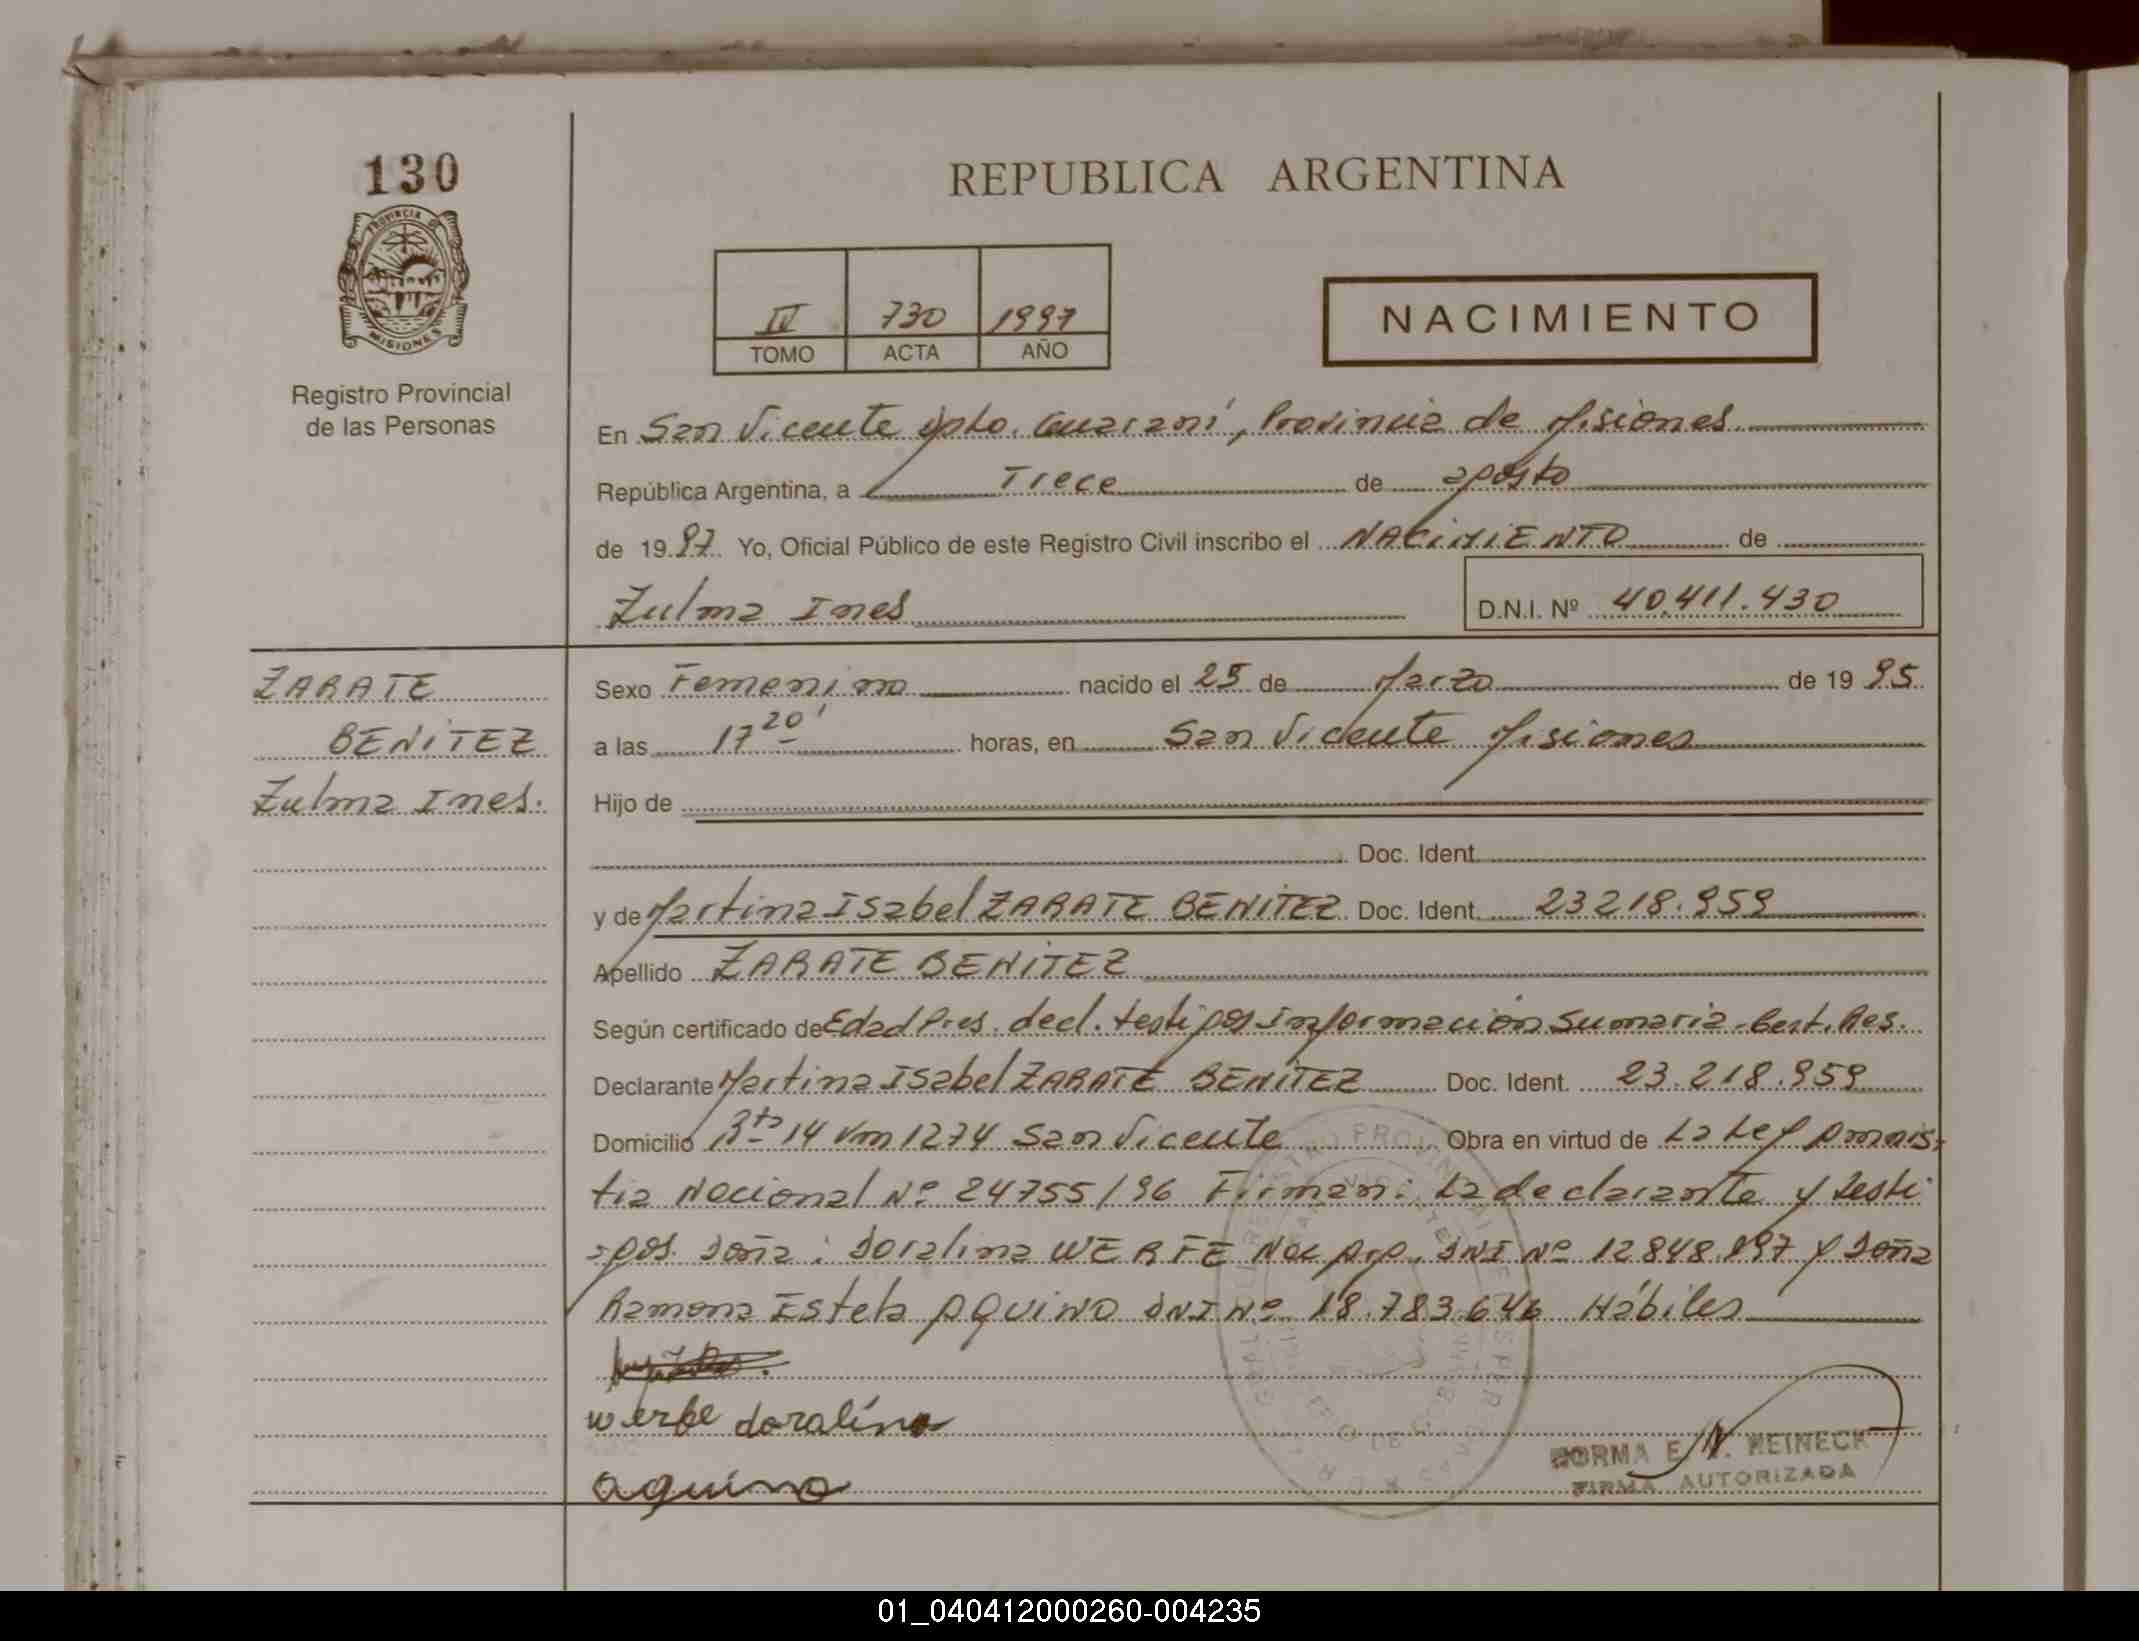 130
REPUBLICA ARGENTINA
PROVINCIA DE
MISIONES
Registro Provincial
de las Personas
IV 730 1997
TOMO ACTA AÑO
NACIMIENTO
En San Vicente Dpto. Guaraní, Provincia de Misiones
República Argentina, a Trece de agosto
de 1997 Yo, Oficial Público de este Registro Civil inscribo el NACIMIENTO de
Zulma Ines
D.N.I. Nº 40.411.430
ZARATE
BENITEZ
Zulma Ines.
Sexo Femenino nacido el 25 de Marzo de 1995
a las 17 20' horas, en San Vicente Misiones
Hijo de
Doc. Ident.
y de Martina Isabel ZARATE BENITEZ Doc. Ident. 23218.959
Apellido ZARATE BENITEZ
Según certificado de Edad Pres. decl. testigos Informacion Sumaria. Cert. Res.
Declarante Martina Isabel ZARATE BENITEZ Doc. Ident. 23.218.959
Domicilio Rta 14 Km 1274 San Vicente Obra en virtud de La Ley Amnis-
tia Nacional Nº 24755/96 Firman: La declarante y testi
gos. Doña: Doralina WERFE Nac Arg. DNI Nº 12848.897 y Doña
Ramona Estela AQUINO DNI Nº 18.783.646 Hábiles
werfe doralina
aquino
NORMA E. N. MEINECK
FIRMA AUTORIZADA
01_040412000260-004235